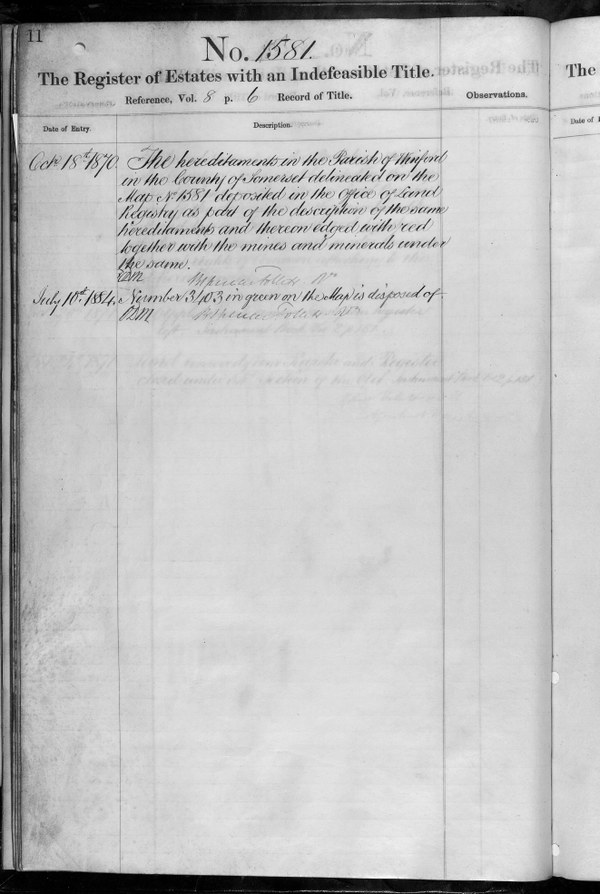 11
No. 1581.
The Register of Estates with an Indefeasible Title.
Reference, Vol. 8 p. 6 Record of Title.
Observations.
Date of Entry.
Description.
Octr 18th 1870.
The hereditaments in the Parish of Winford
in the County of Somerset delineated on the
Map No 1581 deposited in the office of Land
Registry as part of the description of the same
hereditaments and thereon edged with red
together with the mines and minerals under
the same.
July 10th 1884.
Number 3403 in green on the Map is disposed of
The
Date of